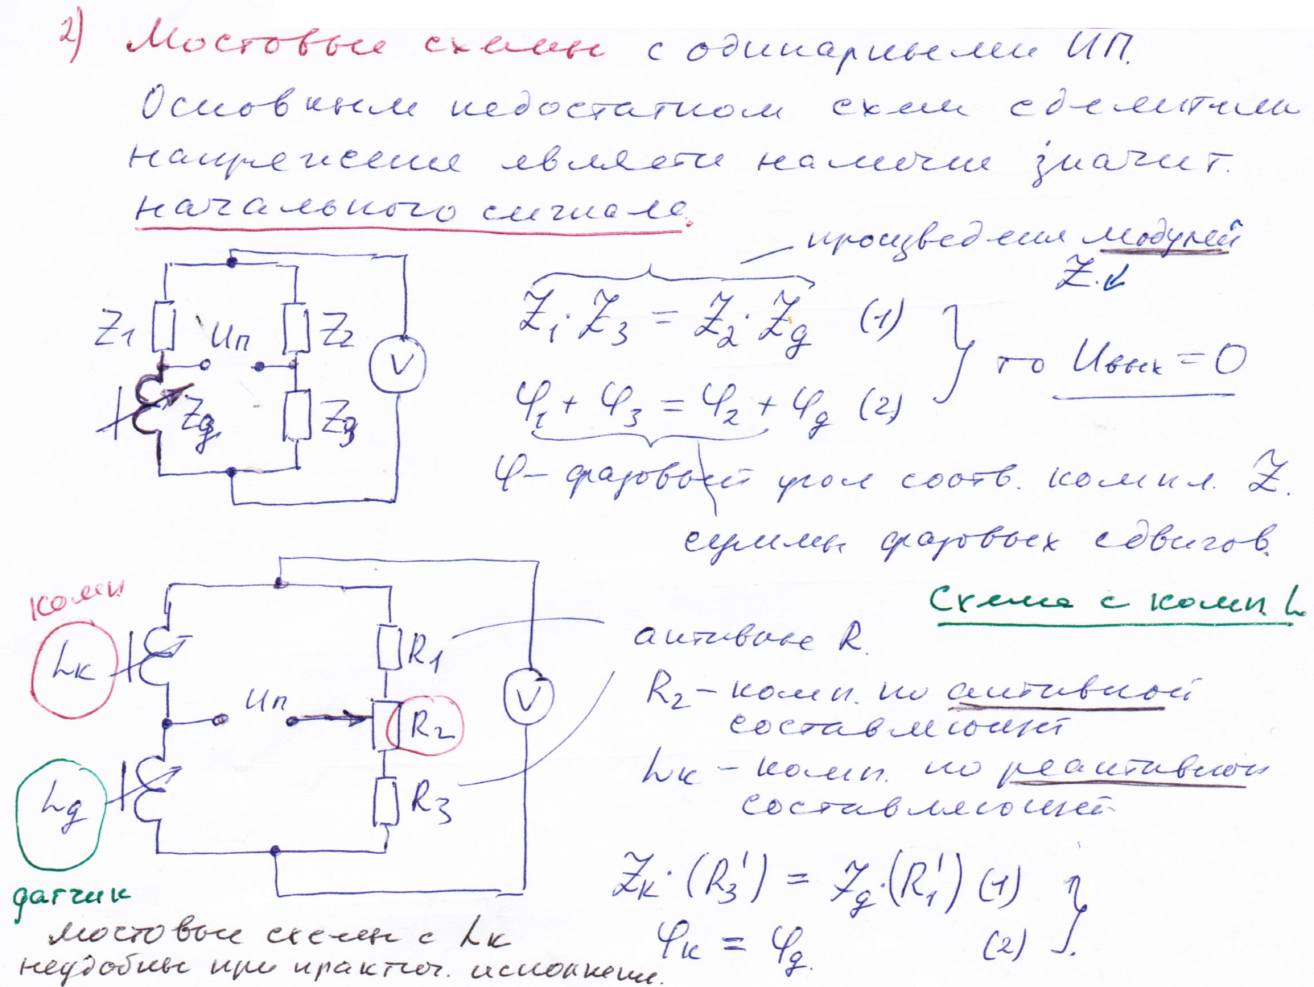 2) Мостовые схемы с одинарными ИП.
Основным недостатком схем с делителем
напряжения является наличие значит.
начального сигнала.
произведения модулей
Z.
Z1 Uп Z2
V
Zд Z3
Z1·Z3 = Z2·Zд (1)
то Uвых = 0
φ1 + φ3 = φ2 + φд (2)
φ – фазовый угол соотв. компл. Z.
суммы фазовых сдвигов.
Схема с комп. L
комп.
Lк
R1
Uп
R2
V
Lд
R3
датчик
активные R.
R2 – комп. по активной
составляющей
Lк – комп. по реактивной
составляющей
Zк·(R3') = Zд·(R1') (1)
φк = φд. (2)
мостовые схемы с Lк
неудобны при практич. исполнении.